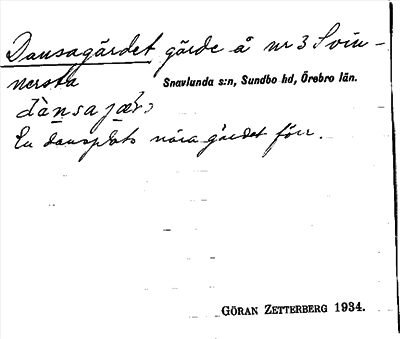 Dansagärdet gärde å nr 3 Svin-
nersta Snavlunda s:n, Sundbo hd, Örebro län.
En dansplats nära gärdet förr.
GÖRAN ZETTERBERG 1934.